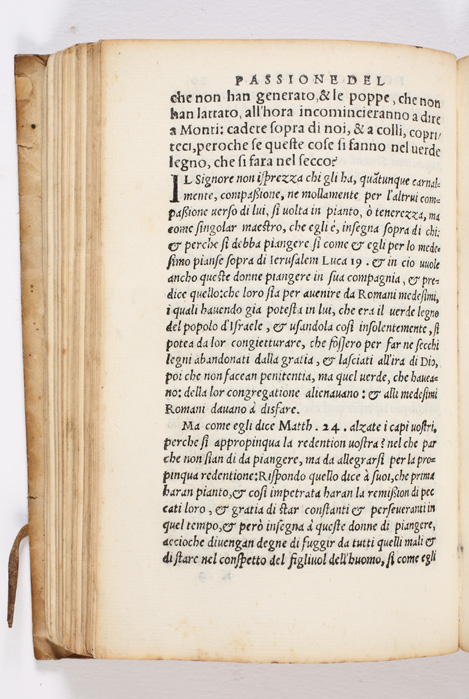 PASSIONE DEL
che non han generato, & le poppe, che non
han lattato, all'hora incomincieranno a dire
a Monti: cadete sopra di noi, & a colli, copri
teci, peroche se queste cose si fanno nel uerde
legno, che si fara nel secco?
IL Signore non isprezza chi gli ha, quãtunque carnal-
mente, compassione, ne mollamente per l'altrui com-
passione uerso di lui, si uolta in pianto, ò tenerezza, ma
come singolar maestro, che egli è, insegna sopra di chi:
& perche si debba piangere si come & egli per lo mede
simo pianse sopra di Ierusalem Luca 19. & in cio uuole
ancho queste donne piangere in sua compagnia, & pre-
dice quello: che loro sia per auenire da Romani medesimi,
i quali hauendo gia potesta in lut, che era il uerde legno
del popolo d'Israele, & usandola così insolentemente, si
potea da lor congietturare, che fossero per far ne secchi
legni abandonati dalla gratia, & lasciati all'ira di Dio,
poi che non facean penitentia, ma quel uerde, che haueа-
no: della lor congregatione alienauano: & alli medesimi
Romani dauano à disfare.
Ma come egli dice Matth. 24. alzate i capi uostri,
perche si appropinqua la redention uostra? nel che par
che non sian di da piangere, ma da allegrarsi per la pro-
pinqua redentione: Rispondo quello dice à suoi, che prima
haran pianto, & così impetrata haran la remißion di pec
cati loro, & gratia di star constanti & perseueranti in
quel tempo, & però insegna à queste donne di piangere,
accioche diuengan degne di fuggir da tutti quelli mali &
di stare nel conspetto del figliuol dell'huomo, si come egli